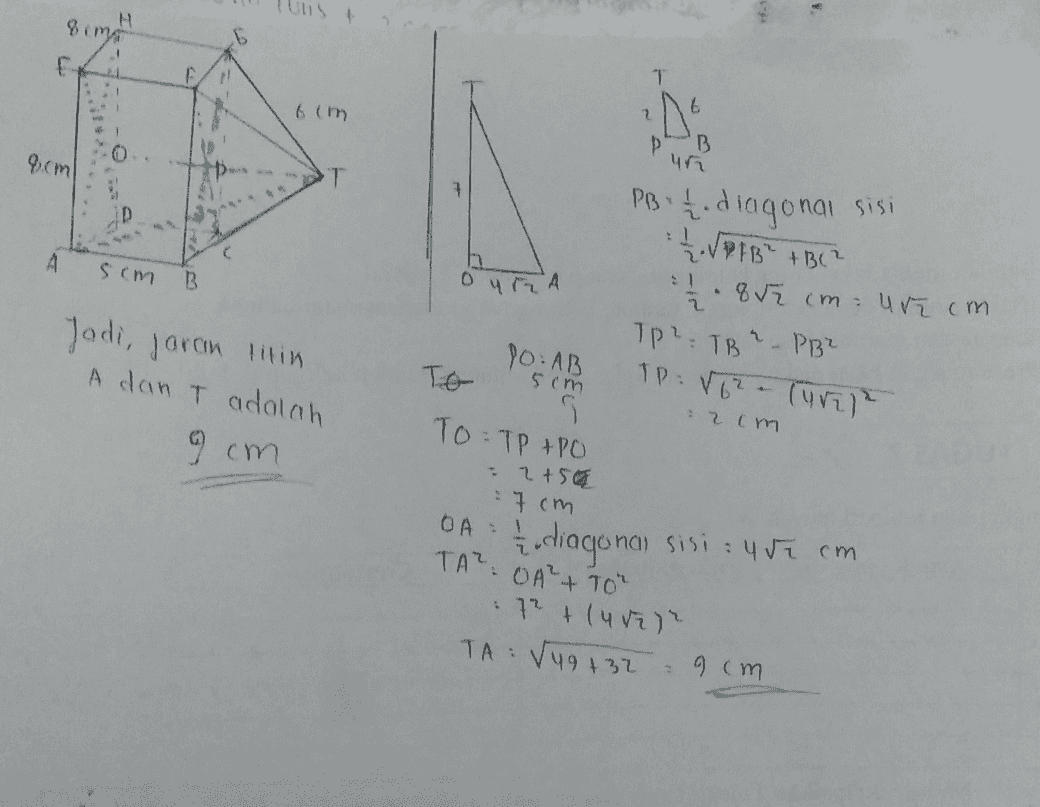 8 cm H
G
E
F
6 cm
8 cm
O
P
T
D
C
A
5 cm
B
Jadi, jarak titik
A dan T adalah
9 cm
T
7
O 4√2 A
T
2
6
P
B
4√2
PB = 1/2 . diagonal sisi
= 1/2 . √FB² + BC²
= 1/2 . 8√2 cm = 4√2 cm
TP² = TB² - PB²
TP = √6² - (4√2)²
= 2 cm
PO = AB
5 cm
TO = TP + PO
= 2 + 5
= 7 cm
OA = 1/2 . diagonal sisi = 4√2 cm
TA² = OA² + TO²
= 7² + (4√2)²
TA = √49 + 32 = 9 cm